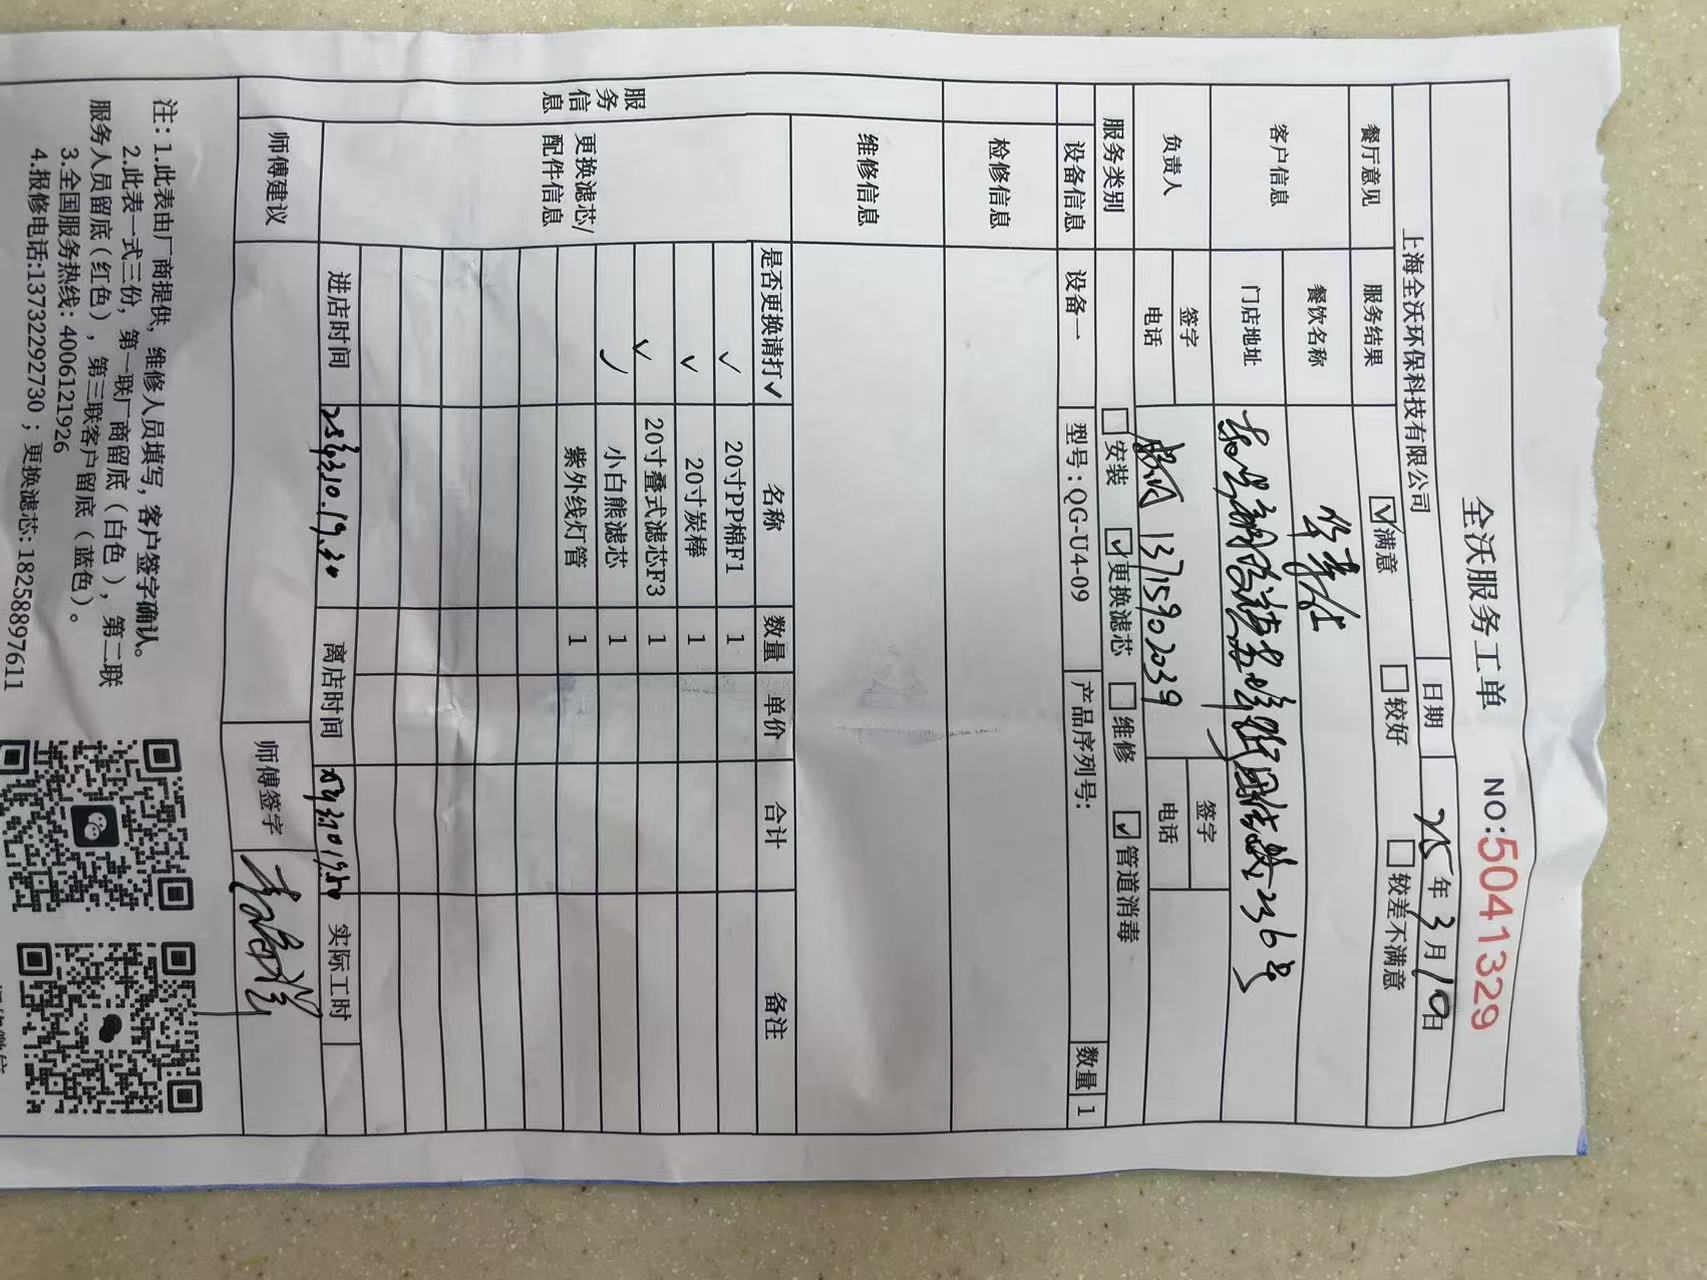 全沃服务工单
NO:5041329
上海全沃环保科技有限公司 日期 25年3月10日
餐厅意见 服务结果 ☑满意 □较好 □较差不满意
客户信息 餐饮名称 华莱士
门店地址 236号
负责人 签字 签字
电话 13715902039 电话
服务类别 □安装 ☑更换滤芯 □维修 ☑管道消毒
设备信息 设备一 型号:QG-U4-09 产品序列号: 数量 1
服务信息
检修信息
维修信息
更换滤芯/配件信息
是否更换请打✓ 名称 数量 单价 合计 备注
✓ 20寸PP棉F1 1
✓ 20寸炭棒 1
✓ 20寸叠式滤芯F3 1
✓ 小白熊滤芯 1
紫外线灯管 1
进店时间 25年3.10.19.30 离店时间 实际工时
师傅建议 师傅签字
注: 1.此表由厂商提供, 维修人员填写, 客户签字确认。
2.此表一式三份, 第一联厂商留底(白色), 第二联
服务人员留底(红色), 第三联客户留底(蓝色)。
3.全国服务热线: 4006121926
4.报修电话:13732292730 ; 更换滤芯:18258897611